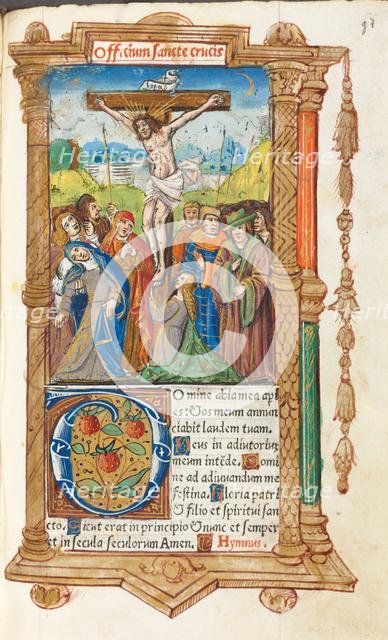 97
Officium sancte crucis
INRI
Domine labia mea apꝛi
es: Et os meum annun
ciabit laudem tuam.
Deus in adiutoriũ
meum intẽde. Domi
ne ad adiuuandum me
festina. Gloria patri
et filio et spiritui san
cto. Sicut erat in principio et nunc et semper
et in secula seculorum Amen. Hymnus.
Heritage
Heritage
Heritage
Heritage
Heritage
Heritage
Heritage
Heritage